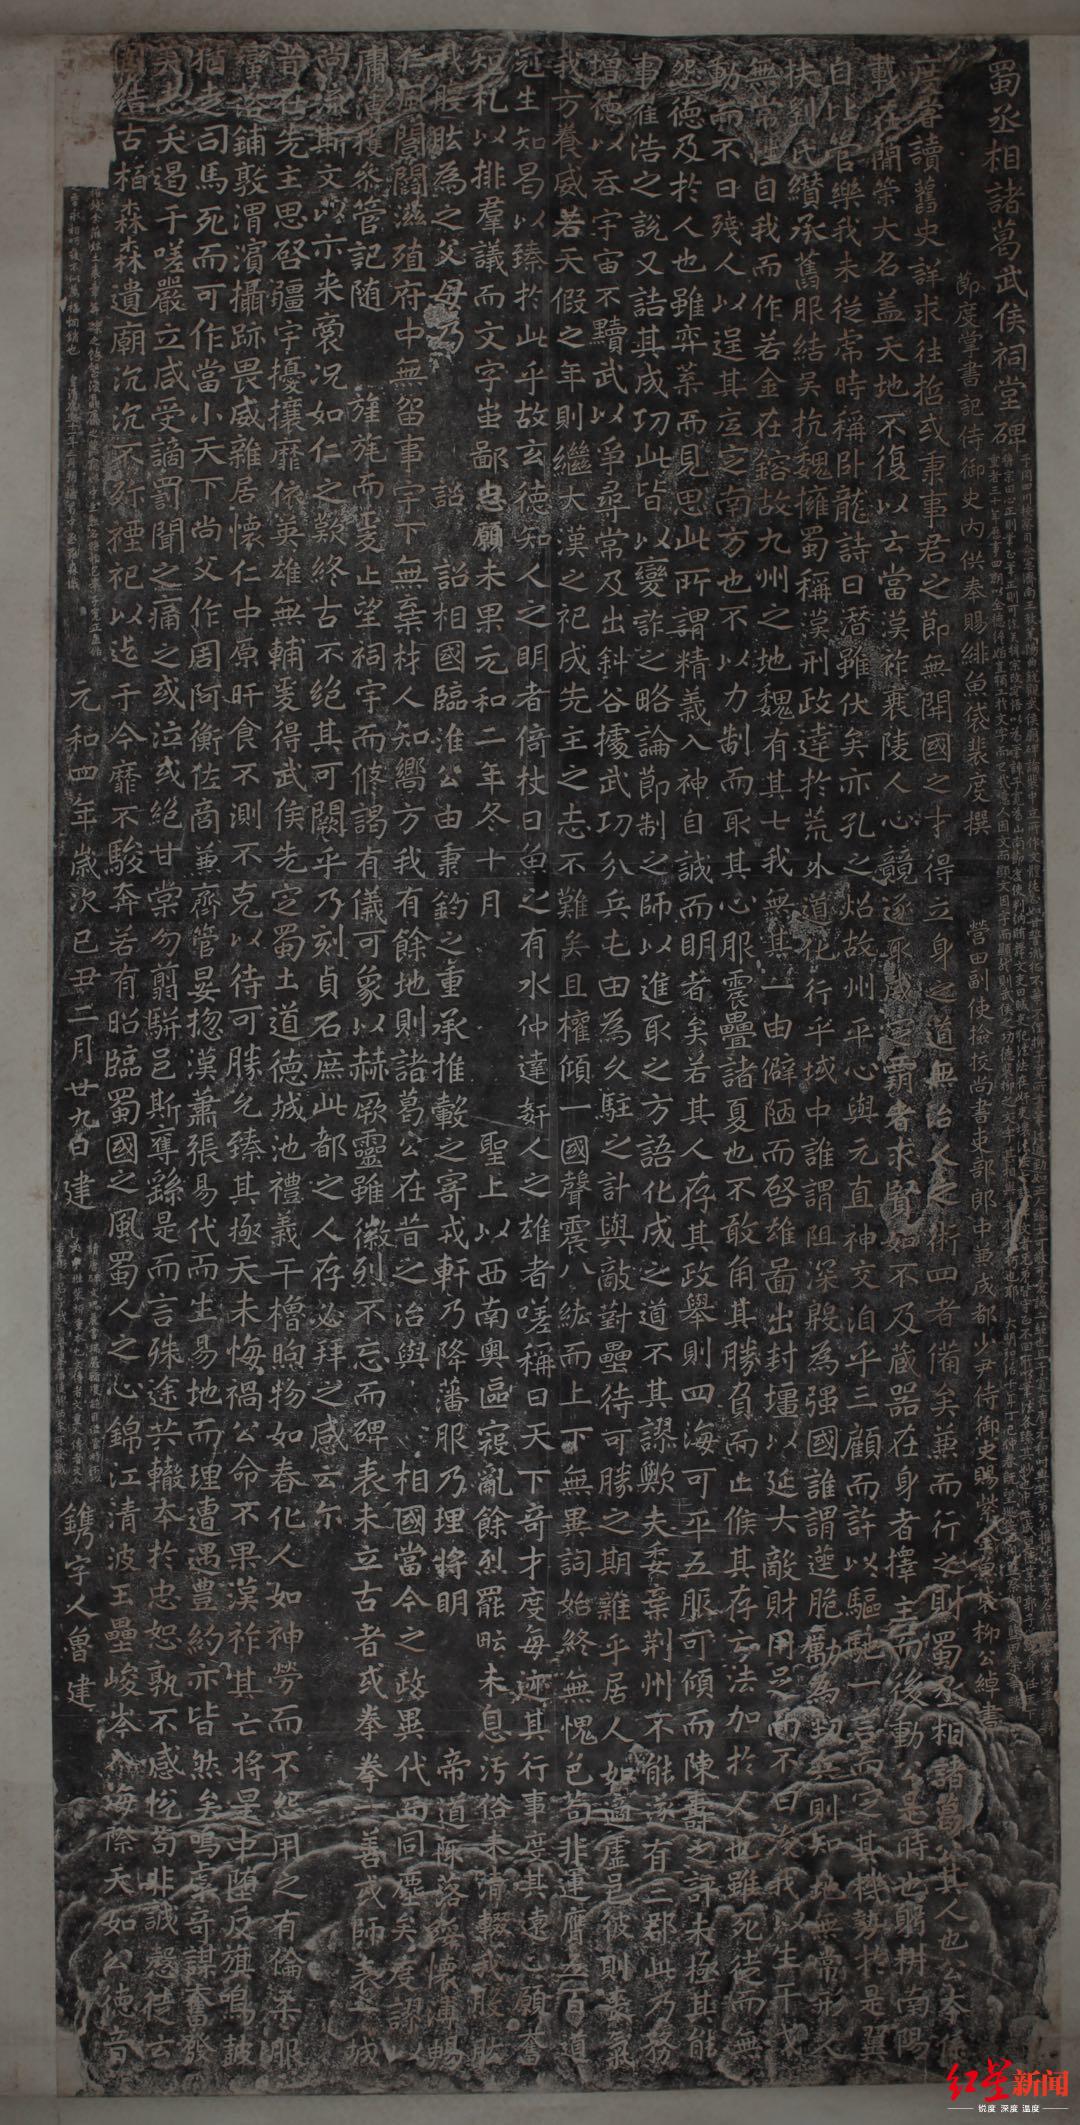 蜀丞相諸葛武侯祠堂碑
節度掌書記侍御史內供奉賜緋魚袋裴度撰 營田副使檢校尚書吏部郎中兼成都少尹侍御史賜紫金魚袋柳公綽書
度嘗讀舊史詳求往哲或秉事君之節無開國之才得立身之道無治人之術四者備矣兼而行之則蜀丞相諸葛公其人也公本係
載在簡策大名盖天地不復以云當漢祚衰陵人心競逐取威定霸者求賢如不及藏器在身者擇主而後動公是時也躬耕南陽
自比管樂我未從虎時稱卧龍詩曰潛雖伏矣亦孔之炤故州平心與元直神交洎乎三顧而許以驅馳一言而定其機勢於是翼
扶劉氏纘承舊服結吳抗魏擁蜀稱漢刑政達於荒外道化行乎域中誰謂阻深殷為強國誰謂遼脆厲為勁兵則知地無常形人
無常性自我而作若金在鎔故九州之地魏有其七我無其一由僻陋而啓雄圖出封壃以延大敵財用足而不曰浚我以生干戈
動而不曰殘人以逞其底定南方也不以力制而取其心服震疊諸夏也不敢角其勝負而止候其存亡法加於人也雖死徒而無
怨德及於人也雖奕葉而見思此所謂精義入神自誠而明者矣若其人存其政舉則四海可平五服可傾而陳壽之評未極其能
事崔浩之說又詰其成功此皆以變詐之略論節制之師以進取之方語化成之道不其謬歟夫委棄荊州不能遂有三郡此乃務
增德以吞宇宙不黷武以爭尋常及出斜谷據武功分兵屯田為久駐之計與敵對壘待可勝之期雜乎居人如適虛邑彼則喪氣
我方養威若天假之年則繼大漢之祀成先主之志不難矣且權傾一國聲震八紘而上下無異詞始終無愧色苟非運膺五百道
冠生知曷以臻於此乎故玄德知人之明者倚杖曰魚之有水仲達奸人之雄者嗟稱曰天下奇才度每迹其行事度其遠心願奮
短札以排羣議而文字蚩鄙志願未果元和二年冬十月 聖上以西南奧區寇亂餘烈罷甿未息汚俗未清輟我股肱
我股肱為之父母乃 詔 詔相國臨淮公由秉鈞之重承推轂之寄戎軒乃降藩服乃理將明 帝道陬落綏懷溥暢
仁風閭閻滋殖府中無留事宇下無棄材人知嚮方我有餘地則諸葛公在昔之治與 相國當今之政異代而同塵矣度謬以
庸薄獲參管記隨 旌旄而爰止望祠宇而修謁有儀可象以赫厥靈雖徽烈不忘而碑表未立古者或拳拳一善或師表一城
尚流斯文以示来裔況如仁之歎終古不絕其可闕乎乃刻貞石庶此都之人存必拜之感云尒
昔在先主思啓疆宇擾攘靡依英雄無輔爰得武侯先定蜀土道德城池禮義干櫓煦物如春化人如神勞而不怨用之有倫柔服
蠻落鋪敦渭濱攝跡畏威雜居懷仁中原旰食不測不克以待可勝允臻其極天未悔禍公命不果漢祚其亡將星中墮反旗鳴鼓
猶走司馬死而可作當小天下尚父作周阿衡佐商兼齊管晏揔漢蕭張易代而生易地而理遭遇豊約亦皆然矣嗚虖奇謀奮發
美志夭遏吁嗟嚴立咸受謫罰聞之痛之或泣或絕甘棠勿翦駢邑斯奪繇是而言殊途共轍本於忠恕孰不感恱苟非誠愨徒云
固結古柏森森遺廟沉沉不殄禋祀以迄于今靡不駿奔若有昭臨蜀國之風蜀人之心錦江清波玉壘峻岑入海際天如公德音
元和四年歲次己丑二月廿九日建 鐫字人魯建
红星新闻
锐度 深度 温度